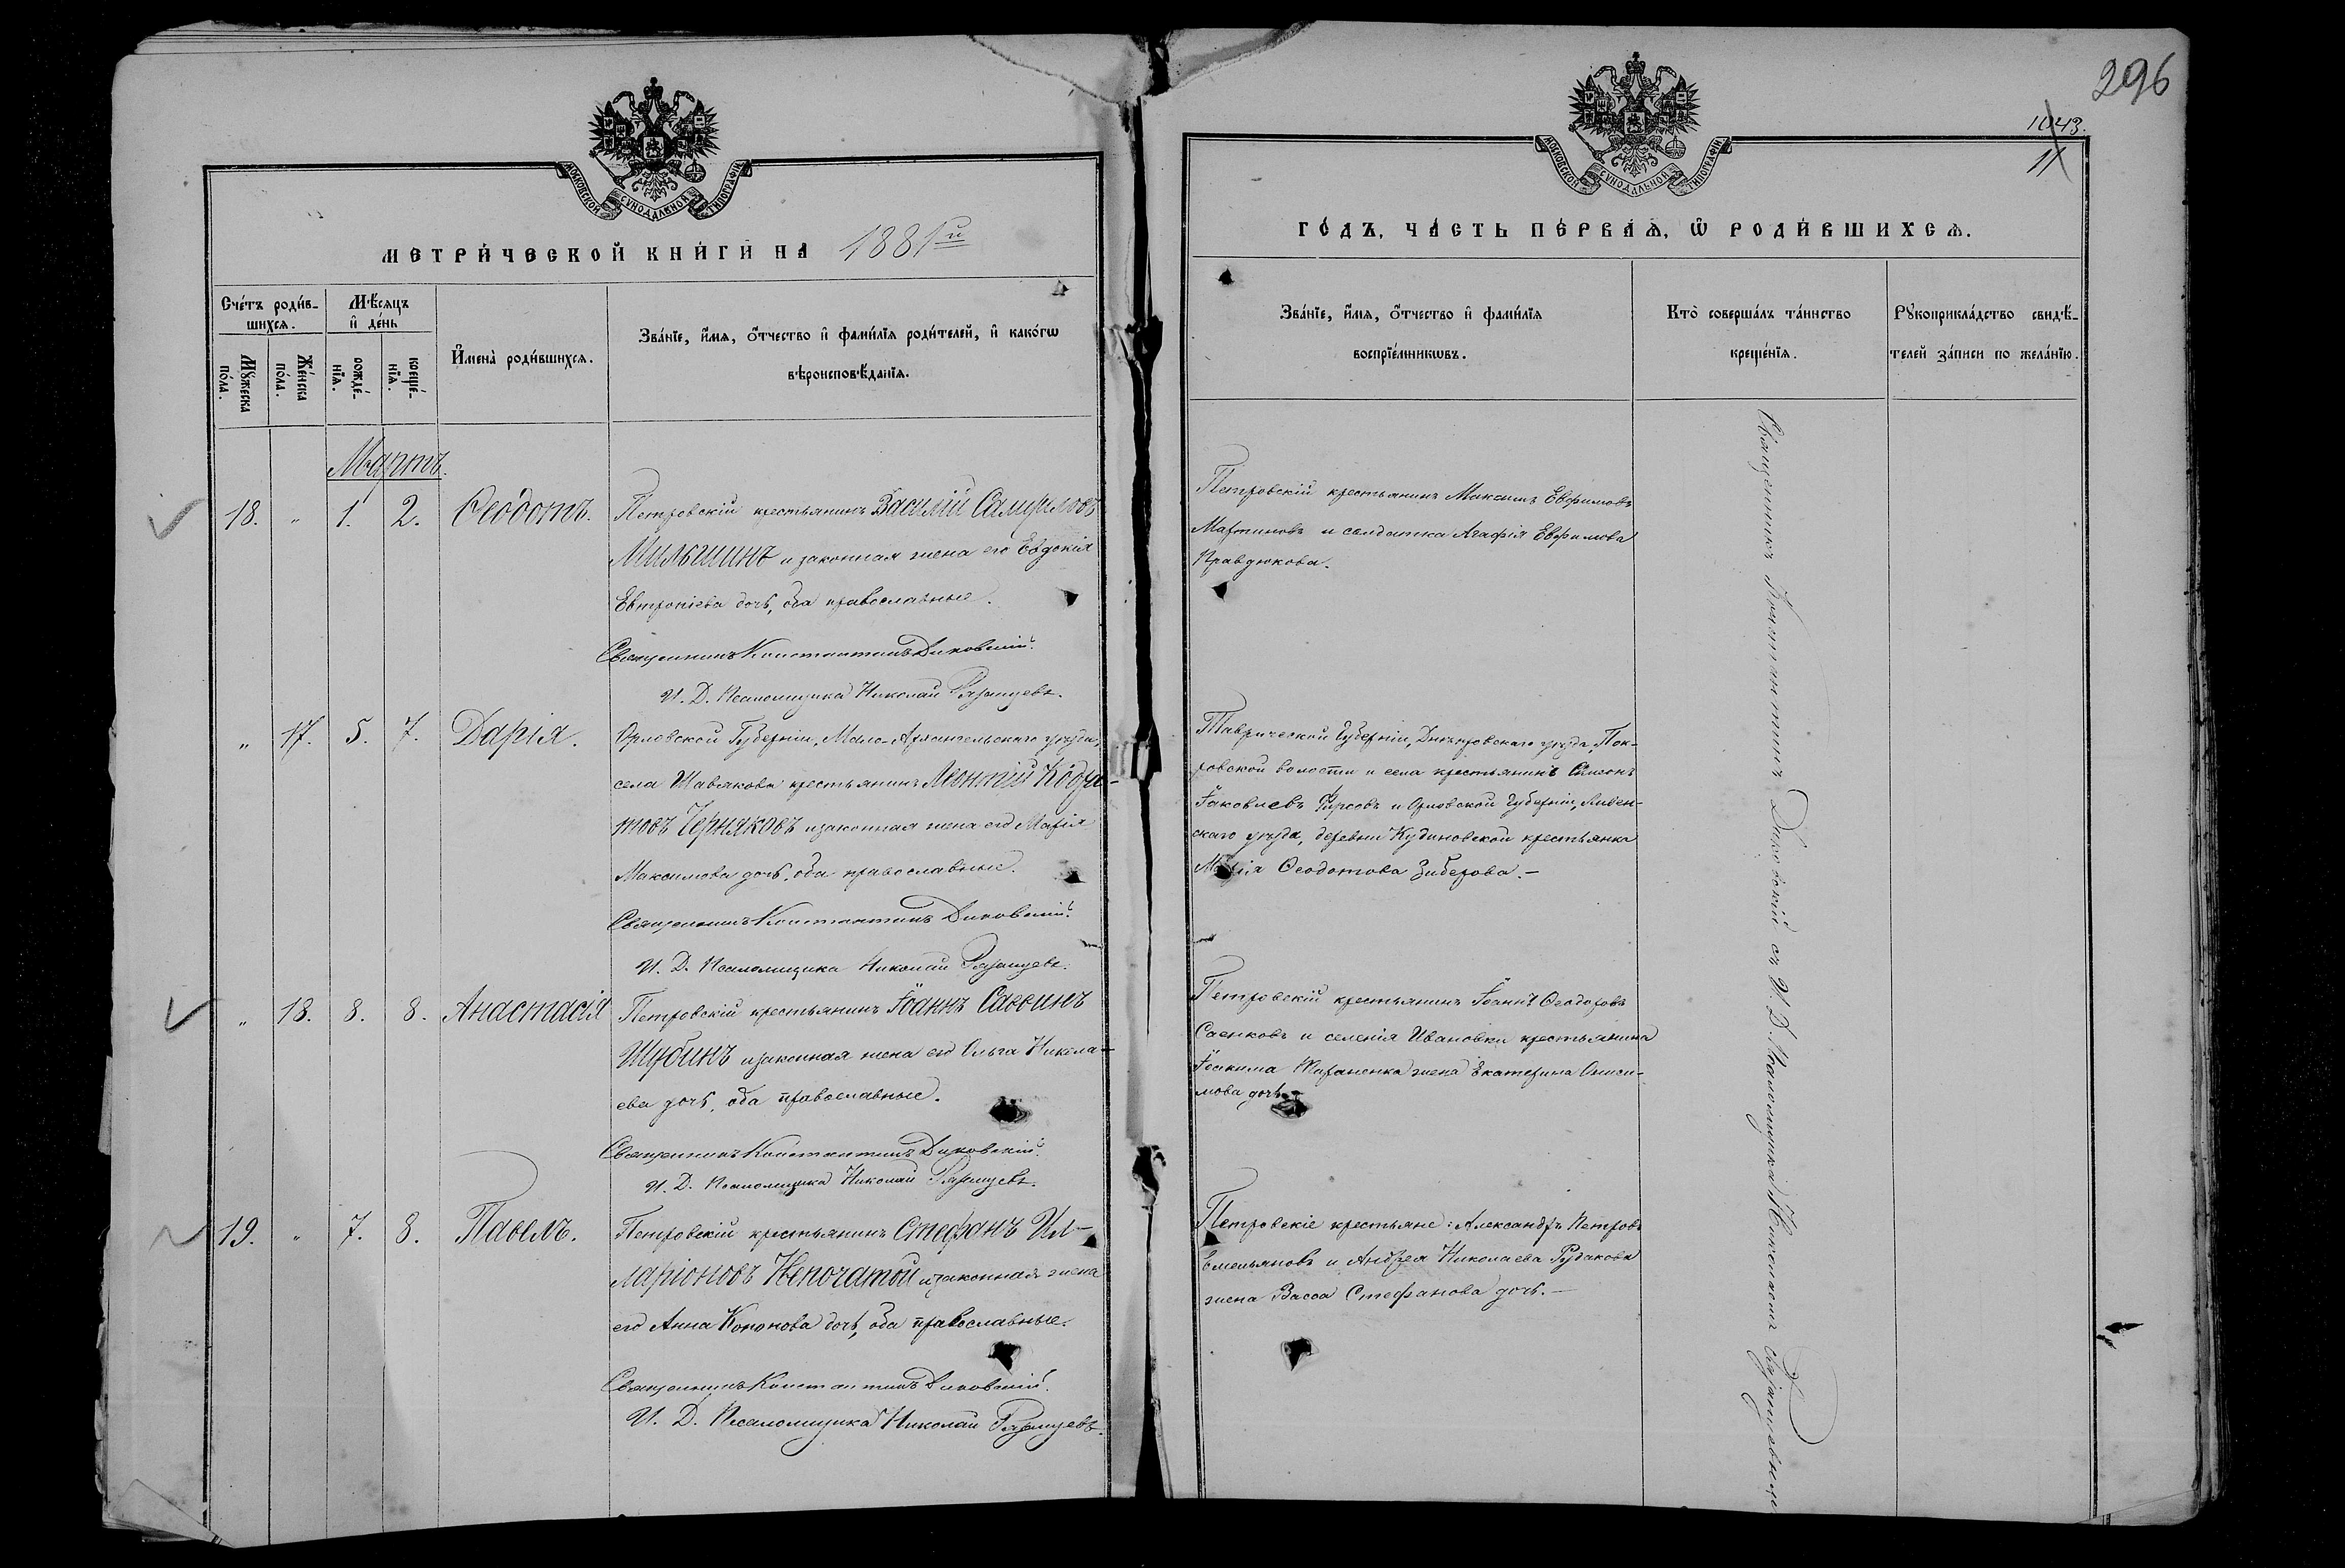 296
1043.
11
МОСКОВСКОЙ СУНОДАЛЬНОЙ ТИПОГРАФІИ
МЕТРИ́ЧЕСКОЙ КНИ́ГИ НА 1881й
Сче́тъ роди́в-
шихся.
Мѣ́сяцъ
и҆ де́нь
Мꙋ́жеска
по́ла.
Же́нска
по́ла.
рожде́-
нїя.
креще́-
нїя.
И҆мена̀ роди́вшихся.
Зва́нїе, и҆́мя, ѻ҆́тчество и҆ фами́лїя роди́телей, и҆ како́гѡ
вѣроисповѣ́данїя.
Мартъ.
18. " 1. 2. Ѳеодотъ.
Петровскій крестьянинъ Василій
Мильшинъ и законная жена его Евдокія
Евтропіева дочь, оба православные.
Священникъ Константинъ Диковскій.
И. Д. Псаломщика Николай Рязанцевъ.
" 17. 5. 7. Дарія.
Орловской Губерніи, Мало-Архангельскаго уѣзда,
села крестьянинъ Леонтій Кодра-
товъ Черняковъ и законная жена его Марія
Максимова дочь, оба православные.
Священникъ Константинъ Диковскій.
И. Д. Псаломщика Николай Рязанцевъ.
" 18. 8. 8. Анастасія
Петровскій крестьянинъ Іоаннъ Саввинъ
Шубинъ и законная жена его Ольга Никола-
ева дочь, оба православные.
Священникъ Константинъ Диковскій.
И. Д. Псаломщика Николай Рязанцевъ.
19. " 7. 8. Павелъ.
Петровскій крестьянинъ Стефанъ Ил-
ларіоновъ Непочатой и законная жена
его Анна Кононова дочь, оба православные.
Священникъ Константинъ Диковскій.
И. Д. Псаломщика Николай Рязанцевъ.
МОСКОВСКОЙ СУНОДАЛЬНОЙ ТИПОГРАФІИ
ГО́ДЪ, ЧА́СТЬ ПЕ́РВАЯ, Ѡ҆ РОДИ́ВШИХСЯ.
Зва́нїе, и҆́мя, ѻ҆́тчество и҆ фами́лїя
воспрїе́мникѡвъ.
Кто̀ соверша́лъ та́инство
креще́нїя.
Рꙋкоприкла́дство свидѣ́-
телей за́писи по жела́нїю.
Петровскій крестьянинъ Максимъ Евфимовъ
Мартиновъ и солдатка Агафія Евфимова
Правдюкова.
Таврической Губерніи, Днѣпровскаго уѣзда, Пок-
ровской волости и села крестьянинъ Симеонъ
Іаковлевъ Фирсовъ и Орловской Губерніи, Ливен-
скаго уѣзда, деревни Кудиновской крестьянка
Марія Ѳеодотова Зиберова.-
Петровскій крестьянинъ Іоаннъ Ѳеодоровъ
Саенковъ и селенія Ивановки крестьянина
Іоакима жена Екатерина Ониси-
мова дочь.
Петровскіе крестьяне: Александръ Петровъ
Емельяновъ и Андрея Николаева Рудакова
жена Васса Стефанова дочь.-
Священникъ Константинъ Диковскій съ И. Д. Псаломщика Николаемъ Рязанцевымъ